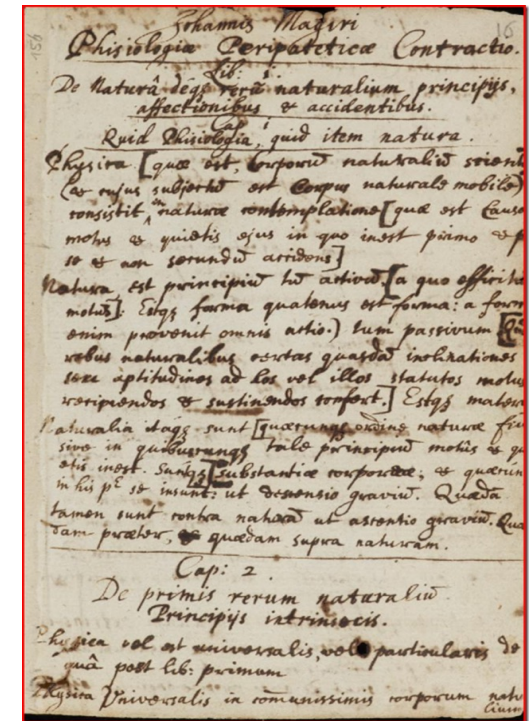 16
156
Johannis Magiri
Phisiologiæ Peripateticæ Contractio.
Lib: 1.
De Naturâ deqȝ rerū naturalium principijs,
affectionibus & accidentibus.
Cap 1
Quid Phisiologia, quid item natura.
Physica [quæ est, corporū naturaliū scient
(& cujus subjectū est Corpus naturale mobile)
consistit in naturæ contemplatione [quæ est Causa
motus & quietis ejus in quo inest primo & p
se & non secundū accidens]
Natura est principiū tū activū [a quo efficitu
motus]: Estqȝ forma quatenus est forma: a form
enim provenit omnis actio.) tum passivum
rebus naturalibus certas quasdā inclinationes
seu aptitudines ad hos vel illos statutos motu
recipiendos & sustinendos confert.] Estqȝ mater
Naturalia itaqȝ sunt [quæcunqȝ ordine naturæ
sive in quibuscunqȝ tale principiū motûs & qu
etis inest. Suntqȝ] substantiæ corporeæ; & quæcun
in his pr se insunt: ut descensio graviū. Quædā
tamen sunt contra naturā ut ascensio graviū. Quæ
dam præter, & quædam supra naturam.
Cap: 2
De primis rerum naturaliū
Principijs intrinsecis.
Physica vel est universalis, vel particularis de
quâ post lib: primum
Physica Universalis in com̄unissimis corporum natu
lium